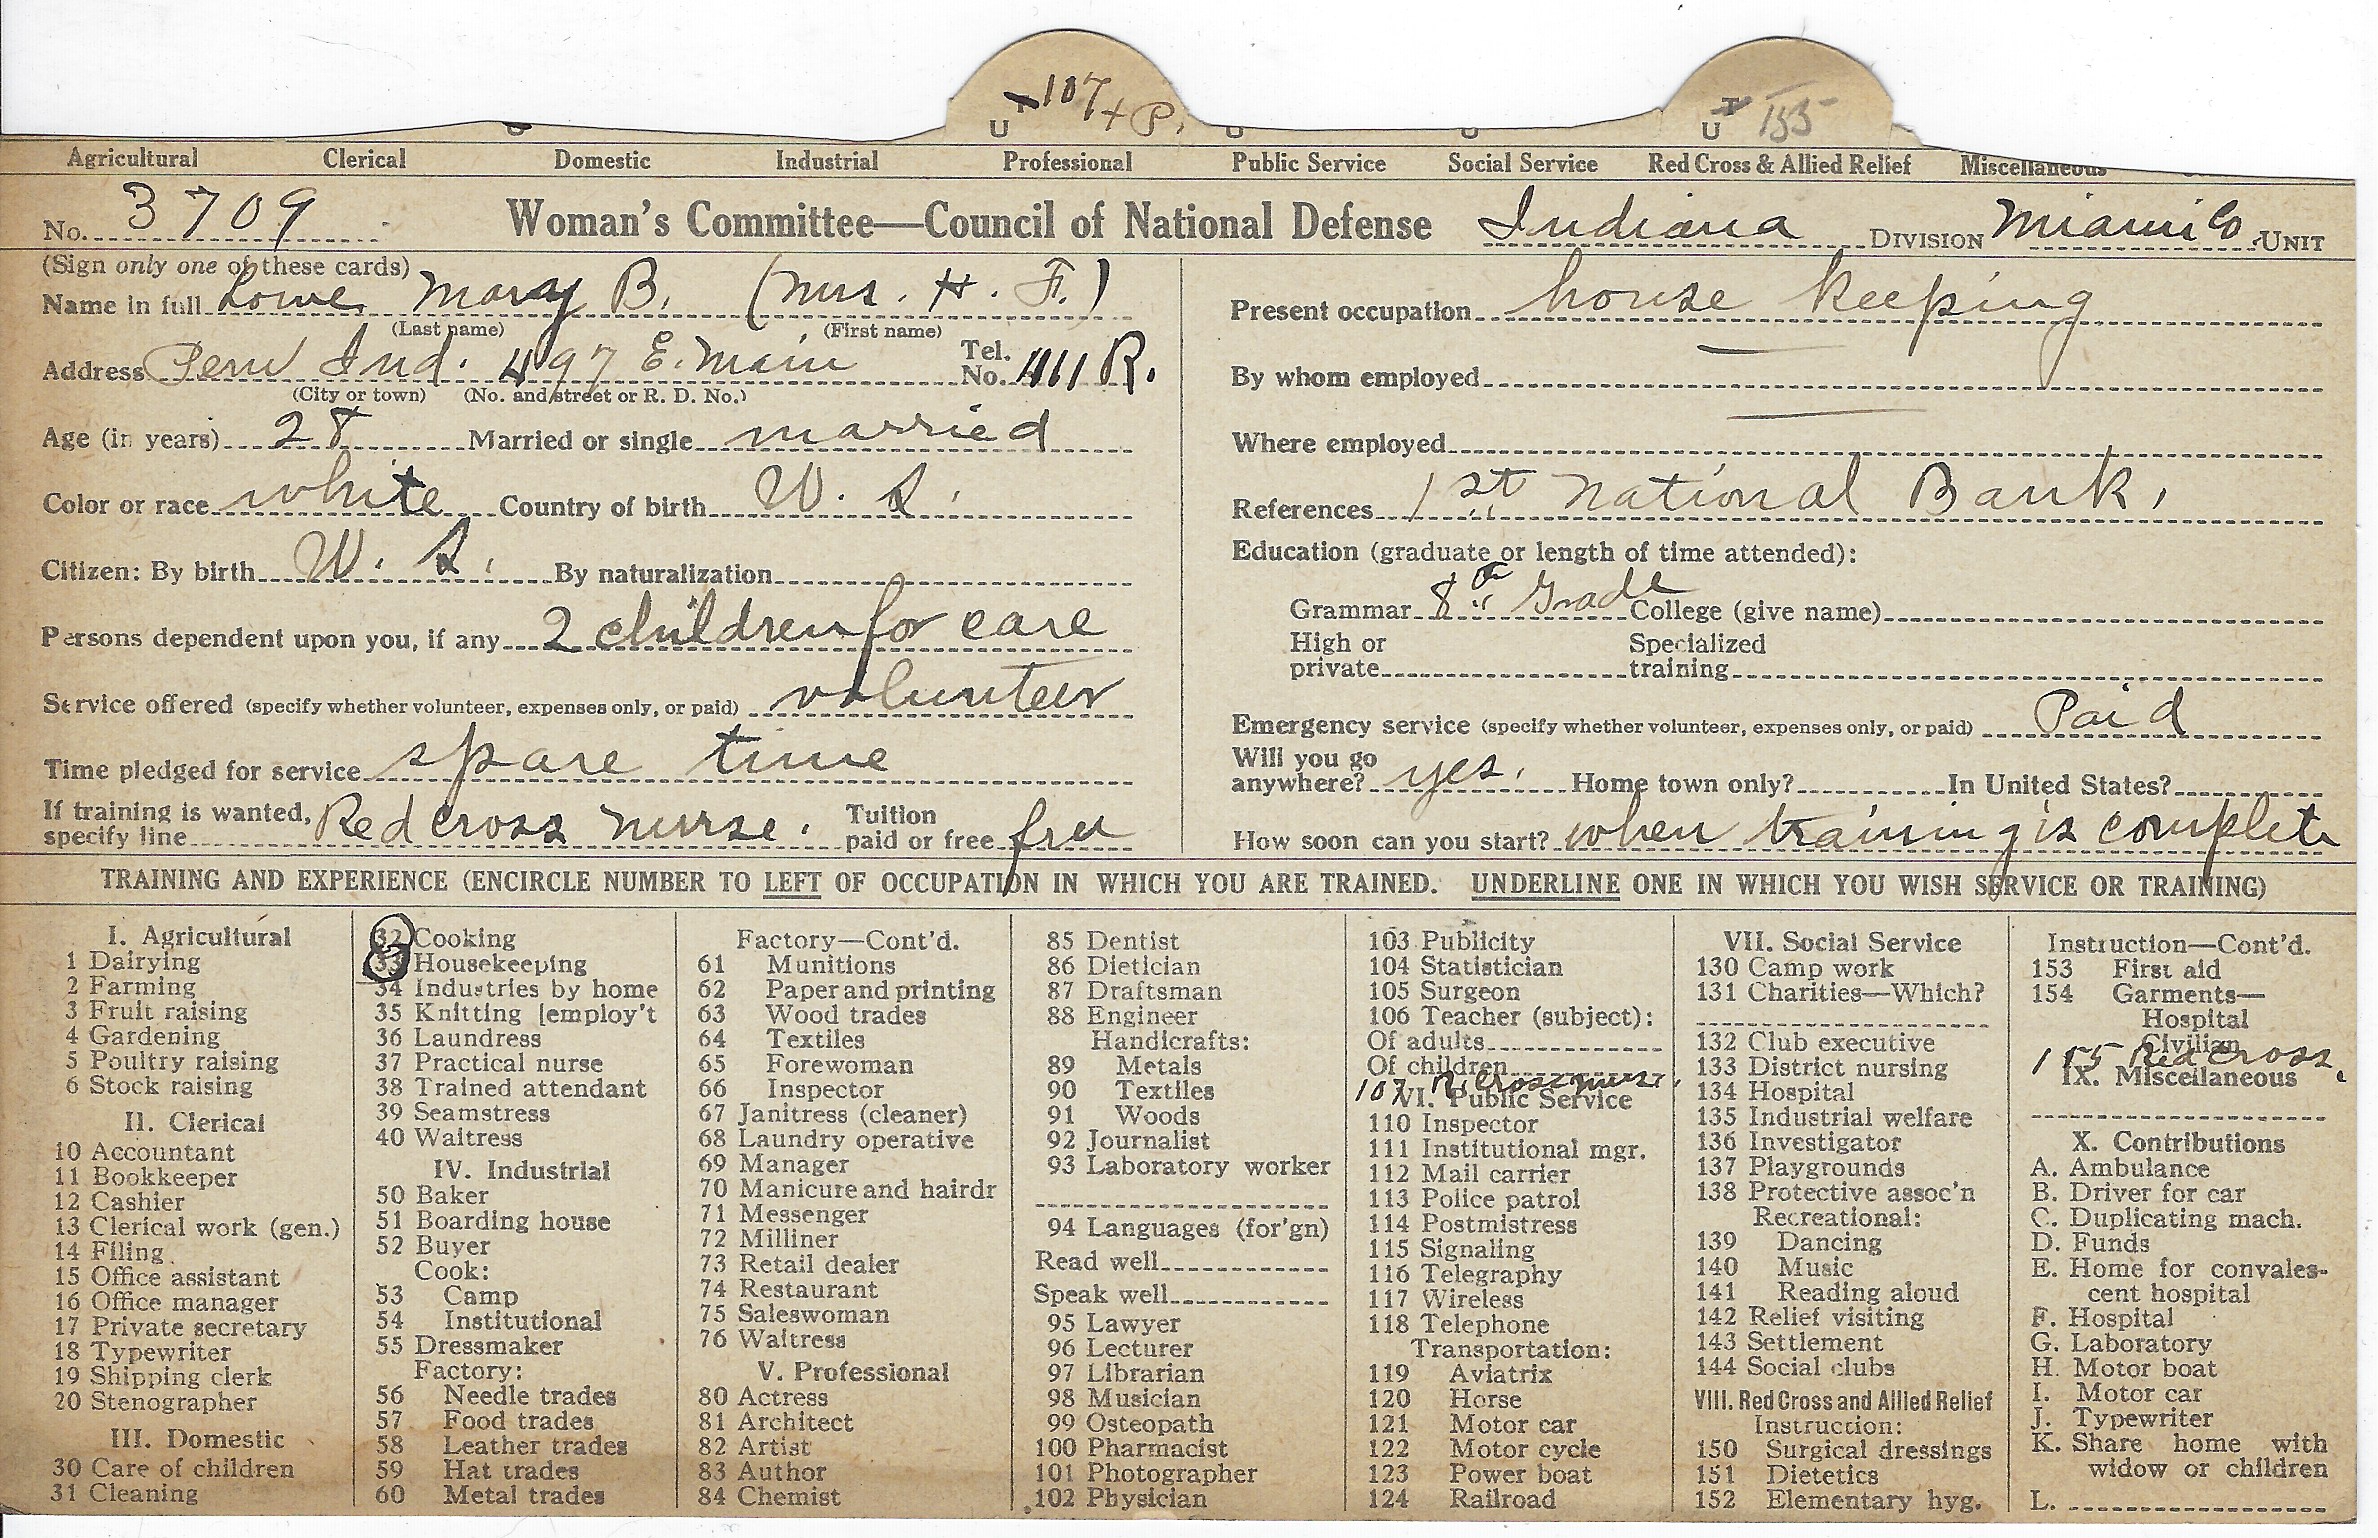 107 + P.
U
U 155
Agricultural Clerical Domestic Industrial Professional Public Service Social Service Red Cross & Allied Relief Miscellaneous
No. 3709 Woman's Committee—Council of National Defense Indiana DIVISION Miami Co UNIT
(Sign only one of these cards)
Name in full Lowe Mary B. (Mrs. H. F.)
(Last name) (First name)
Address Peru Ind. 497 E. Main Tel. No. 1111 R.
(City or town) (No. and street or R. D. No.)
Age (in years) 28 Married or single married
Color or race white Country of birth U. S.
Citizen: By birth U. S. By naturalization
Persons dependent upon you, if any 2 children for care
Service offered (specify whether volunteer, expenses only, or paid) volunteer
Time pledged for service spare time
If training is wanted, specify line Red cross nurse. Tuition paid or free free
Present occupation house keeping
By whom employed
Where employed
References 1st National Bank.
Education (graduate or length of time attended):
Grammar 8th Grade College (give name)
High or private Specialized training
Emergency service (specify whether volunteer, expenses only, or paid) Paid
Will you go anywhere? yes. Home town only? In United States?
How soon can you start? when training is complete
TRAINING AND EXPERIENCE (ENCIRCLE NUMBER TO LEFT OF OCCUPATION IN WHICH YOU ARE TRAINED. UNDERLINE ONE IN WHICH YOU WISH SERVICE OR TRAINING)
I. Agricultural
1 Dairying
2 Farming
3 Fruit raising
4 Gardening
5 Poultry raising
6 Stock raising
II. Clerical
10 Accountant
11 Bookkeeper
12 Cashier
13 Clerical work (gen.)
14 Filing
15 Office assistant
16 Office manager
17 Private secretary
18 Typewriter
19 Shipping clerk
20 Stenographer
III. Domestic
30 Care of children
31 Cleaning
32 Cooking
33 Housekeeping
34 Industries by home
35 Knitting [employ't
36 Laundress
37 Practical nurse
38 Trained attendant
39 Seamstress
40 Waitress
IV. Industrial
50 Baker
51 Boarding house
52 Buyer
Cook:
53 Camp
54 Institutional
55 Dressmaker
Factory:
56 Needle trades
57 Food trades
58 Leather trades
59 Hat trades
60 Metal trades
Factory—Cont'd.
61 Munitions
62 Paper and printing
63 Wood trades
64 Textiles
65 Forewoman
66 Inspector
67 Janitress (cleaner)
68 Laundry operative
69 Manager
70 Manicure and hairdr
71 Messenger
72 Milliner
73 Retail dealer
74 Restaurant
75 Saleswoman
76 Waitress
V. Professional
80 Actress
81 Architect
82 Artist
83 Author
84 Chemist
85 Dentist
86 Dietician
87 Draftsman
88 Engineer
Handicrafts:
89 Metals
90 Textiles
91 Woods
92 Journalist
93 Laboratory worker
94 Languages (for'gn)
Read well
Speak well
95 Lawyer
96 Lecturer
97 Librarian
98 Musician
99 Osteopath
100 Pharmacist
101 Photographer
102 Physician
103 Publicity
104 Statistician
105 Surgeon
106 Teacher (subject):
Of adults
Of children
107 R. Cross nurse.
VI. Public Service
110 Inspector
111 Institutional mgr.
112 Mail carrier
113 Police patrol
114 Postmistress
115 Signaling
116 Telegraphy
117 Wireless
118 Telephone
Transportation:
119 Aviatrix
120 Horse
121 Motor car
122 Motor cycle
123 Power boat
124 Railroad
VII. Social Service
130 Camp work
131 Charities—Which?
132 Club executive
133 District nursing
134 Hospital
135 Industrial welfare
136 Investigator
137 Playgrounds
138 Protective assoc'n
Recreational:
139 Dancing
140 Music
141 Reading aloud
142 Relief visiting
143 Settlement
144 Social clubs
VIII. Red Cross and Allied Relief
Instruction:
150 Surgical dressings
151 Dietetics
152 Elementary hyg.
Instruction—Cont'd.
153 First aid
154 Garments—
Hospital
Civilian
155 Red Cross.
IX. Miscellaneous
X. Contributions
A. Ambulance
B. Driver for car
C. Duplicating mach.
D. Funds
E. Home for convales-
cent hospital
F. Hospital
G. Laboratory
H. Motor boat
I. Motor car
J. Typewriter
K. Share home with
widow or children
L.